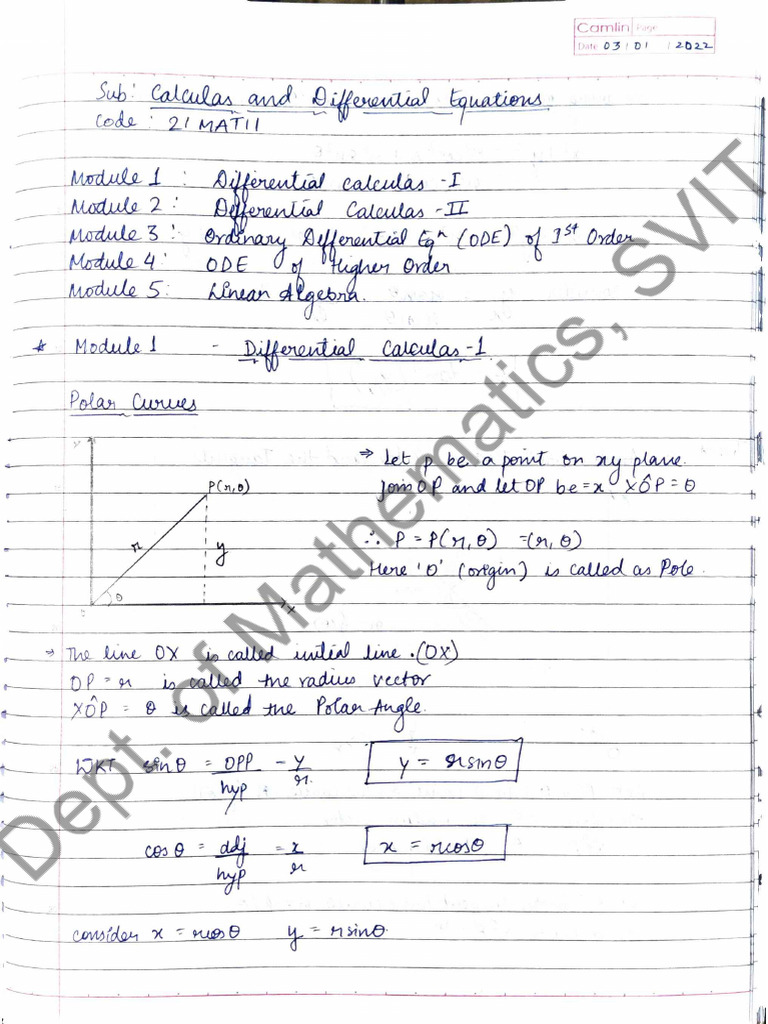 Camlin Page
Date 03 / 01 / 2022
Sub: Calculas and Differential Equations
Code : 21MAT11
Module 1 : Differential Calculas -I
Module 2 : Differential Calculas -II
Module 3 : Ordinary Differential Eqⁿ (ODE) of Iˢᵗ Order
Module 4 : ODE of Higher Order
Module 5 : Linear Algebra.
* Module 1 - Differential Calculas -1
Polar Curves
⇒ Let p be a point on xy plane.
Join OP and let OP be = r XÔP = θ
P(r,θ)
r y
θ
X
∴ P = P(r, θ) = (r, θ)
Here 'O' (origin) is called as Pole.
⇒ The line OX is called initial line .(OX)
OP = r is called the radius vector
XÔP = θ is called the Polar Angle.
WKT sinθ = opp/hyp - y/r. y = rsinθ
cosθ = adj/hyp = x/r x = rcosθ
consider x = rcosθ y = rsinθ
Dept. of Mathematics, SVIT